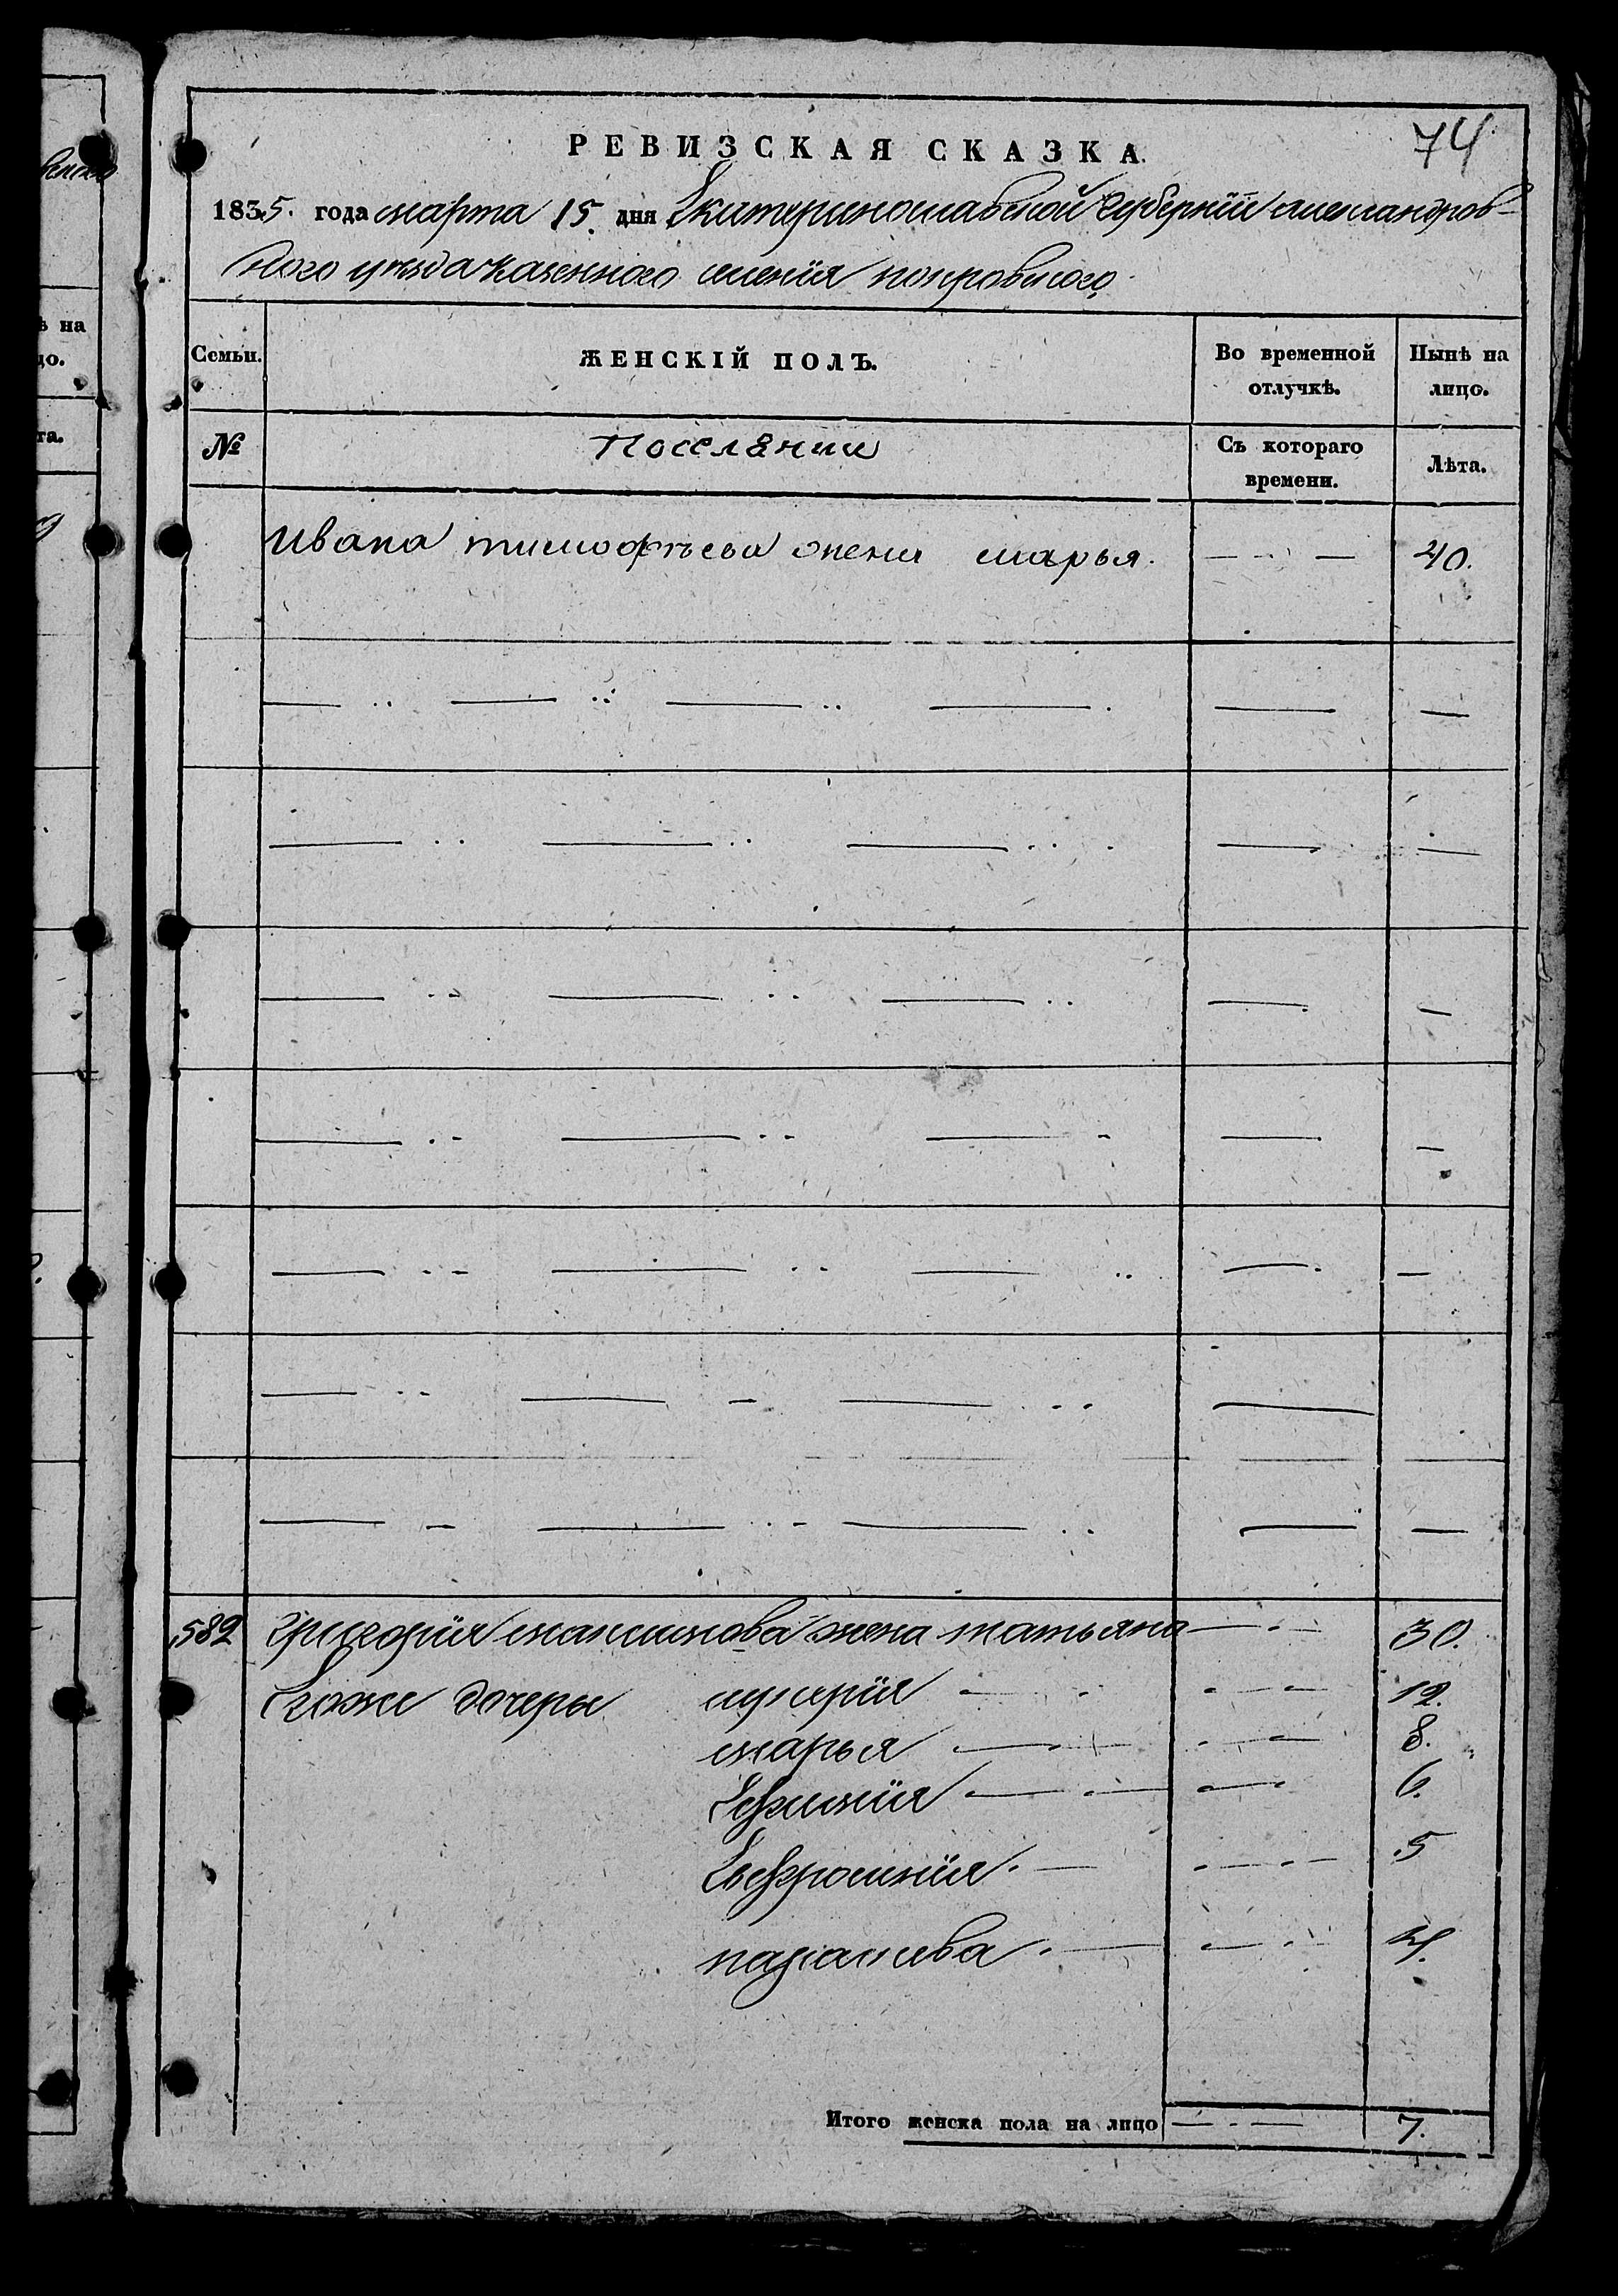 74
РЕВИЗСКАЯ СКАЗКА.
1835. года марта 15. дня Екатеринославской губернïи александров-
ского уѣзда казенного селенïя покровского.
Семьи. ЖЕНСКІЙ ПОЛЪ. Во временной отлучкѣ. Нынѣ на лицо.
№ Поселяни Съ котораго времени. Лѣта.
Ивана тимофѣева жена марья. — — 40.
582 григорïя максимова жена татьяна — · — 30.
Егоже дочеры лукерïя — · — 12.
марья — · — 8.
Ефимïя — · — 6.
Евфросинïя. — · — 5
4.
Итого женска пола на лицо — · — 7.
ѣ на
цо.
та.